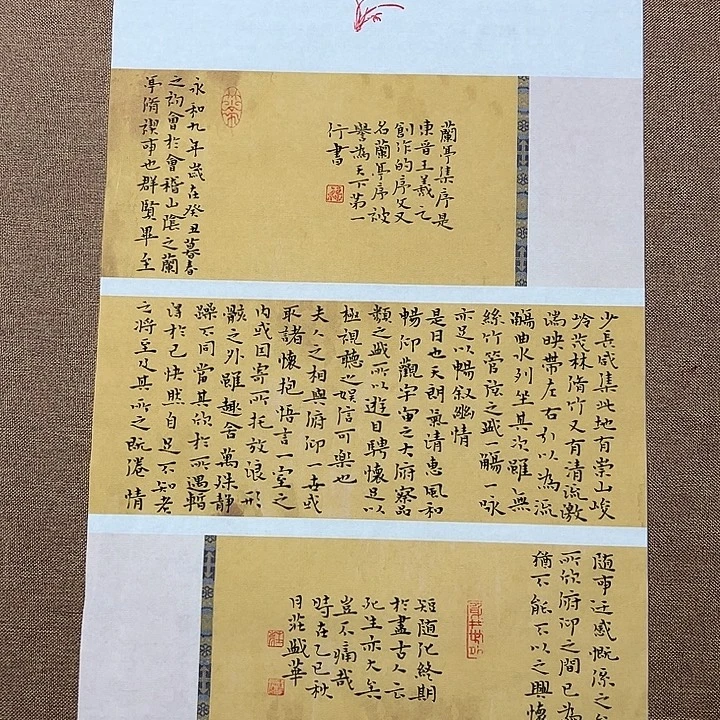 蘭亭集序是
東晉王羲之
創作的序文又
名蘭亭序被
譽為天下第一
行書
永和九年歲在癸丑暮春
之初會於會稽山陰之蘭
亭脩禊事也群賢畢至
少長咸集此地有崇山峻
嶺茂林脩竹又有清流激
湍映帶左右引以為流
觴曲水列坐其次雖無
絲竹管弦之盛一觴一咏
亦足以暢敘幽情
是日也天朗氣清惠風和
暢仰觀宇宙之大俯察品
類之盛所以遊目騁懷足以
極視聽之娛信可樂也
夫人之相與俯仰一世或
取諸懷抱悟言一室之
內或因寄所托放浪形
骸之外雖趣舍萬殊靜
躁不同當其欣於所遇暫
得於己快然自足不知老
之將至及其所之既惓情
随事迁感慨係之
所欣俯仰之間已為
猶不能不以之興懷
短随化終期
於盡古人云
死生亦大矣
豈不痛哉
時在乙巳秋
月莊盛華